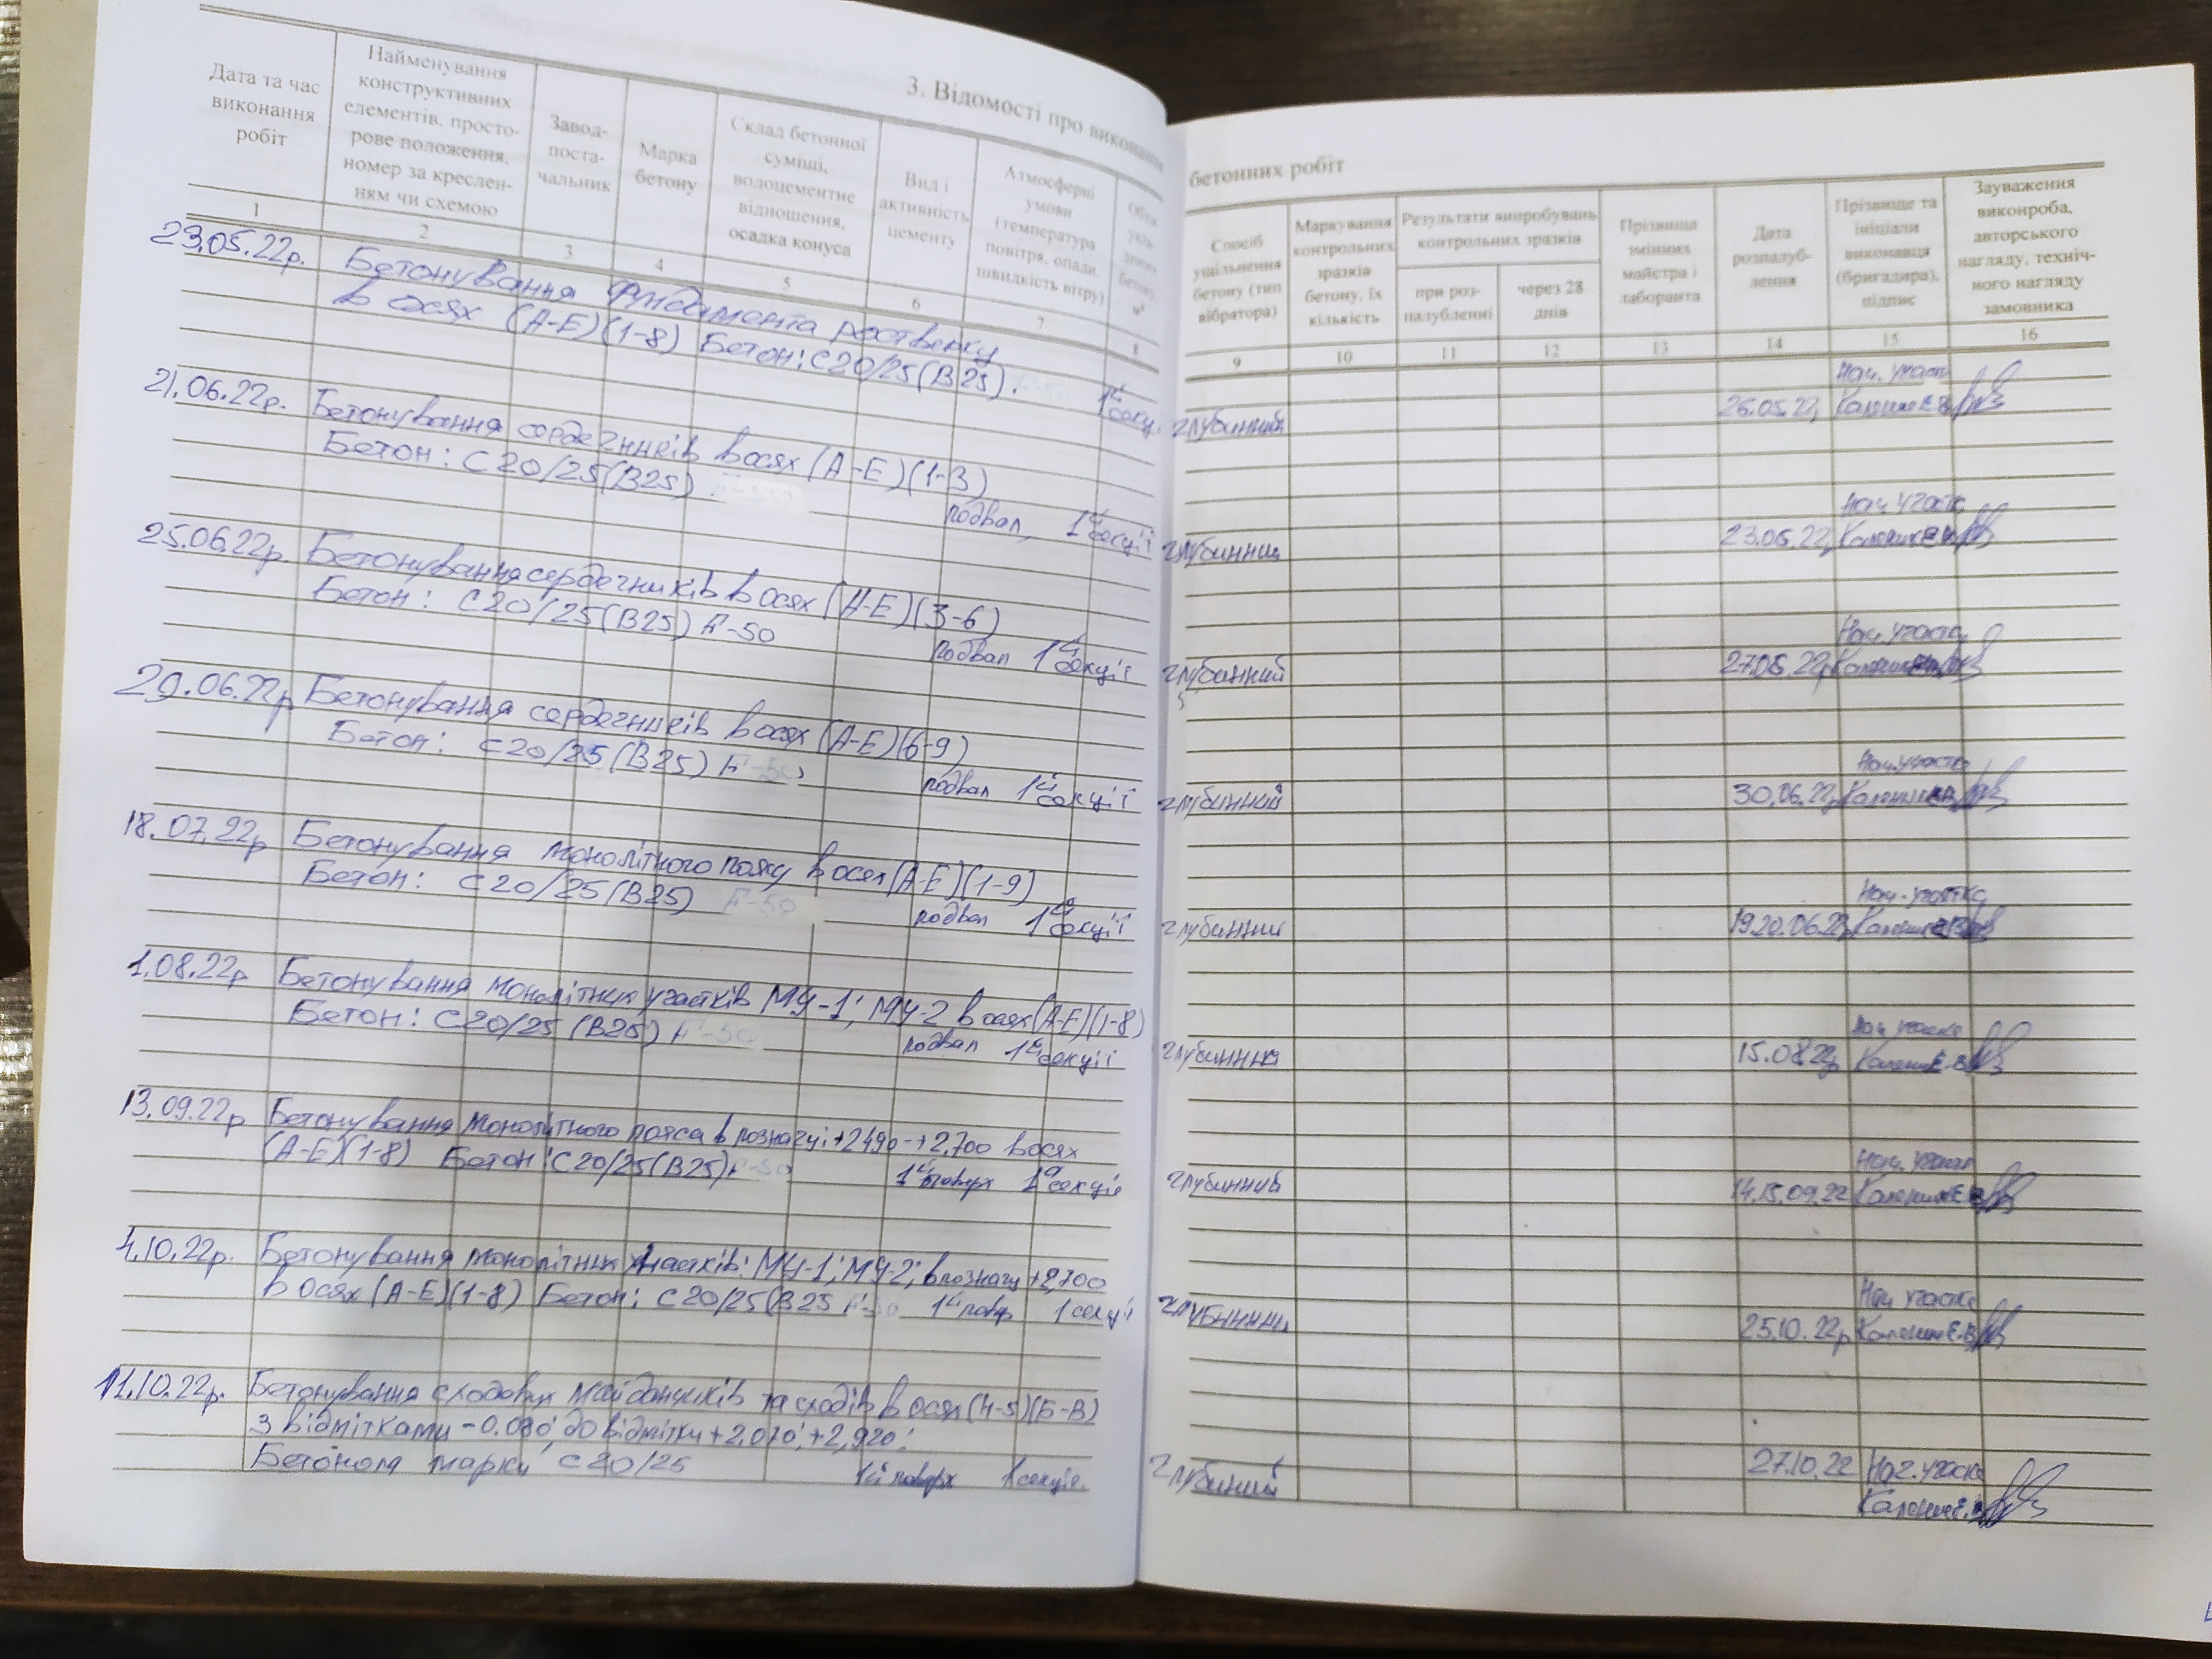 3. Відомості про виконання
бетонних робіт
Дата та час
виконання
робіт
Найменування
конструктивних
елементів, просто-
рове положення,
номер за креслен-
ням чи схемою
Завод-
поста-
чальник
Марка
бетону
Склад бетонної
суміші,
водоцементне
відношення,
осадка конуса
Вид і
активність
цементу
Атмосферні
умови
(температура
повітря, опади,
швидкість вітру)
Спосіб
ущільнення
бетону (тип
вібратора)
Маркування
контрольних
зразків
бетону, їх
кількість
Результати випробувань
контрольних зразків
при роз-
палубленні
через 28
днів
Прізвища
змінних
майстра і
лаборанта
Дата
розпалуб-
лення
Прізвище та
ініціали
виконавця
(бригадира),
підпис
Зауваження
виконроба,
авторського
нагляду, техніч-
ного нагляду
замовника
1 2 3 4 5 6 7 8 9 10 11 12 13 14 15 16
23.05.22р. Бетонування фундамента роствеку
в осях (А-Е)(1-8) Бетон: С20/25(В25).
1ї секц. глубинний 26.05.22 Нач. участ
21.06.22р. Бетонування сердечників в осях (А-Е)(1-3)
Бетон: С20/25(В25)
подвал, 1ї секції глубинни 23.06.22р Нач. участк
25.06.22р. Бетонування сердечників в осях (А-Е)(3-6)
Бетон: С20/25(В25) F-50
подвал 1ї секції глубинний 22р Нач. участк
29.06.22р Бетонування сердечників в осях (А-Е)(6-9)
Бетон: С20/25(В25) F-50
подвал 1ї секції глубинний 30.06.22р Нач. участк
18.07.22р Бетонування монолітного поясу в осях (А-Е)(1-9)
Бетон: С20/25(В25) F-50
подвал 1ї секції глубинни 19.20.06.22 Нач. участка
1.08.22р Бетонування монолітних участків МУ-1; МУ-2 в осях (А-Е)(1-8)
Бетон: С20/25 (В25) F-50
подвал 1ї секції глубинни 15.08.22р Нач участка
13.09.22р Бетонування монолітного пояса в познагці +2490-+2,700 в осях
(А-Е)(1-8) Бетон С20/25(В25) F-50
1й поверх 1а секція глубинний 14.15.09.22 Нач. участк
4.10.22р. Бетонування монолітних участків: МУ-1; МУ-2; в познагц +2,700
в осях (А-Е)(1-8) Бетон: С20/25(В25 F-50 1й повер 1 секції
глубинни 25.10.22р Нач участка
11.10.22р. Бетонування сходових майданчиків та сходів в осях (4-5)(Б-В)
З відмітками -0.080; до відмітки +2.070; +2,920;
Бетоном марки С20/25 1й поверх 1 секція.
глубиний 27.10.22 Нач. участк